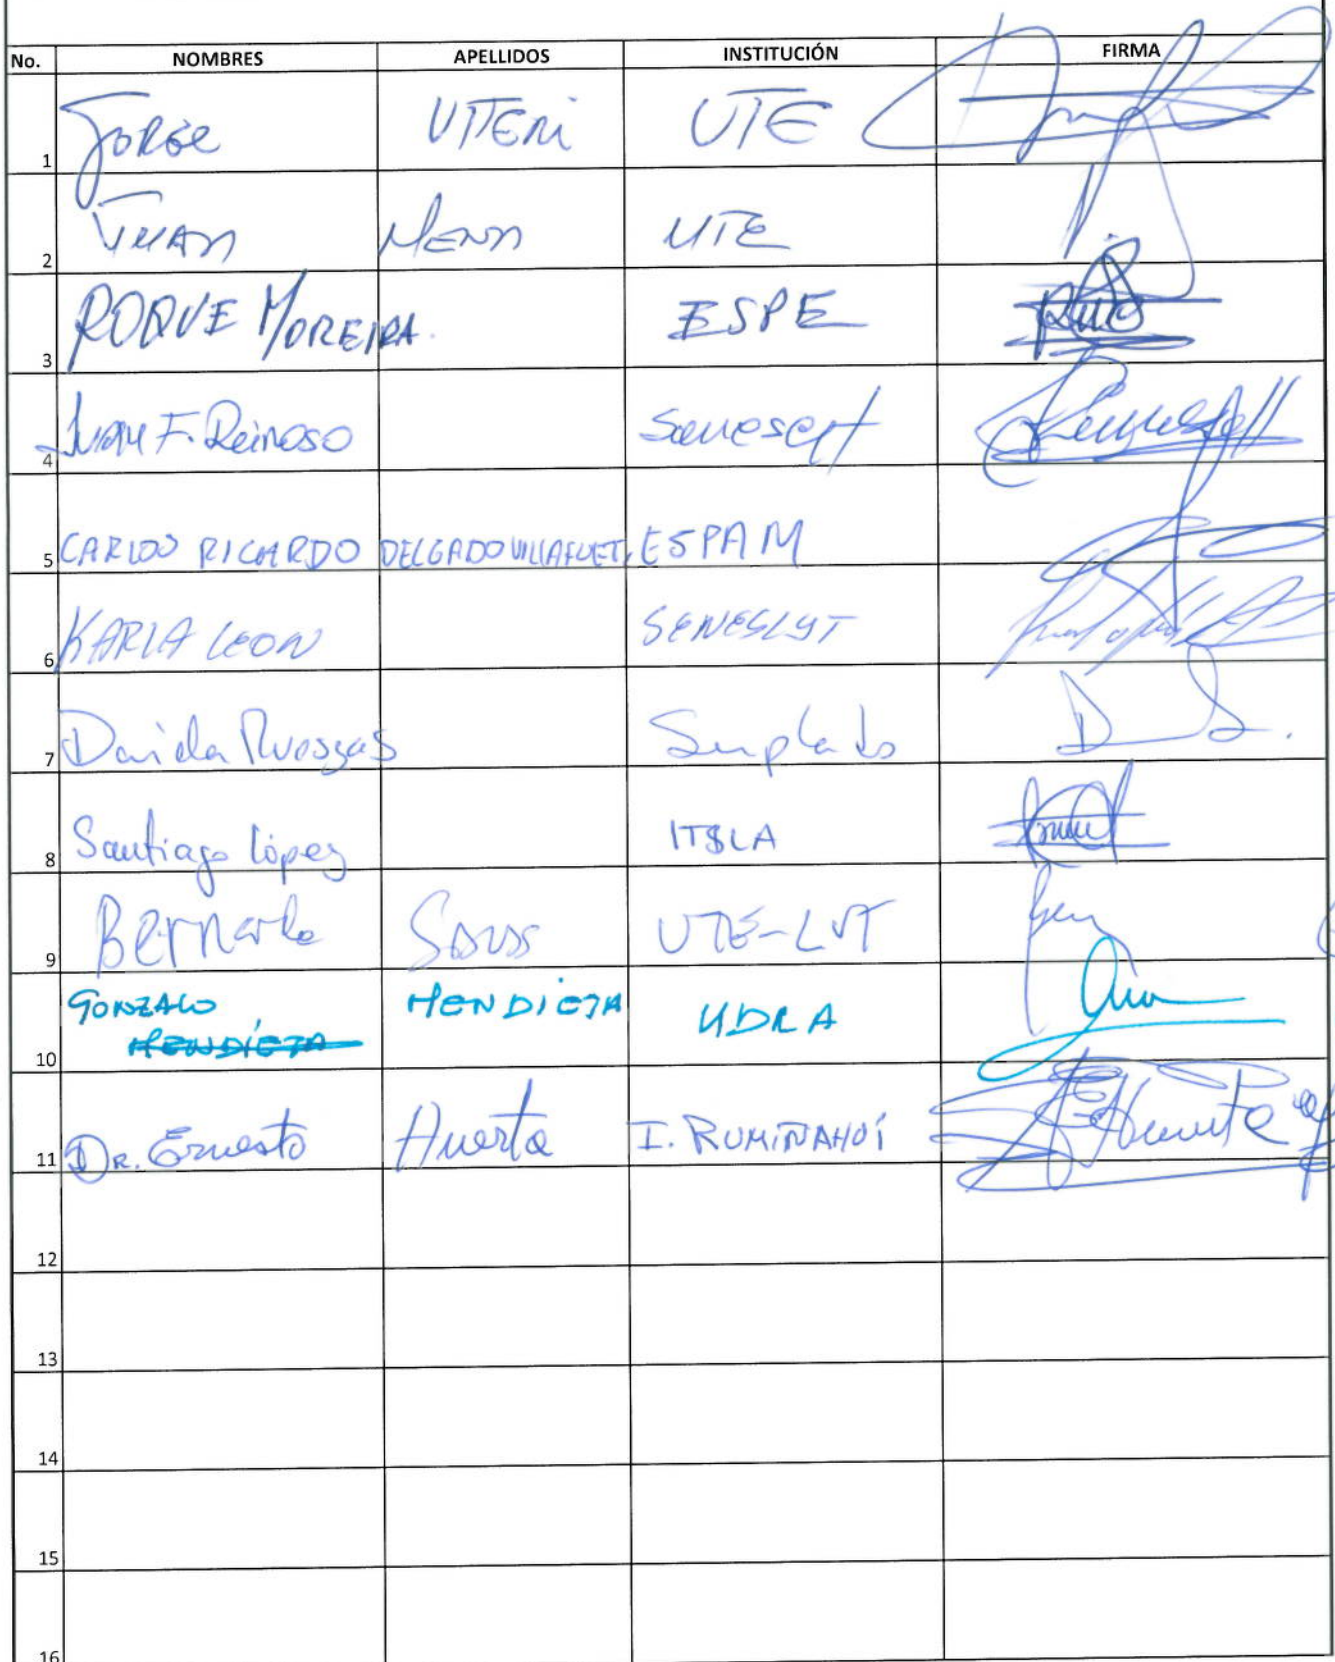 No. NOMBRES APELLIDOS INSTITUCIÓN FIRMA
1 JORGE VITERI UTE
2 JUAN MENA UTE
3 ROQUE MOREIRA. ESPE
4 Juan F. Reinoso Senescyt
5 CARLOS RICARDO DELGADO VILLAFUET. ESPAM
6 KARLA LEON SENESCYT
7 Daniela
8 Santiago López
9 Bernardo UTE-LVT
10 GONZALO MENDIETA UDLA
MENDIETA
11 DR. Ernesto Huerta I. RUMIÑAHUI
12
13
14
15
16